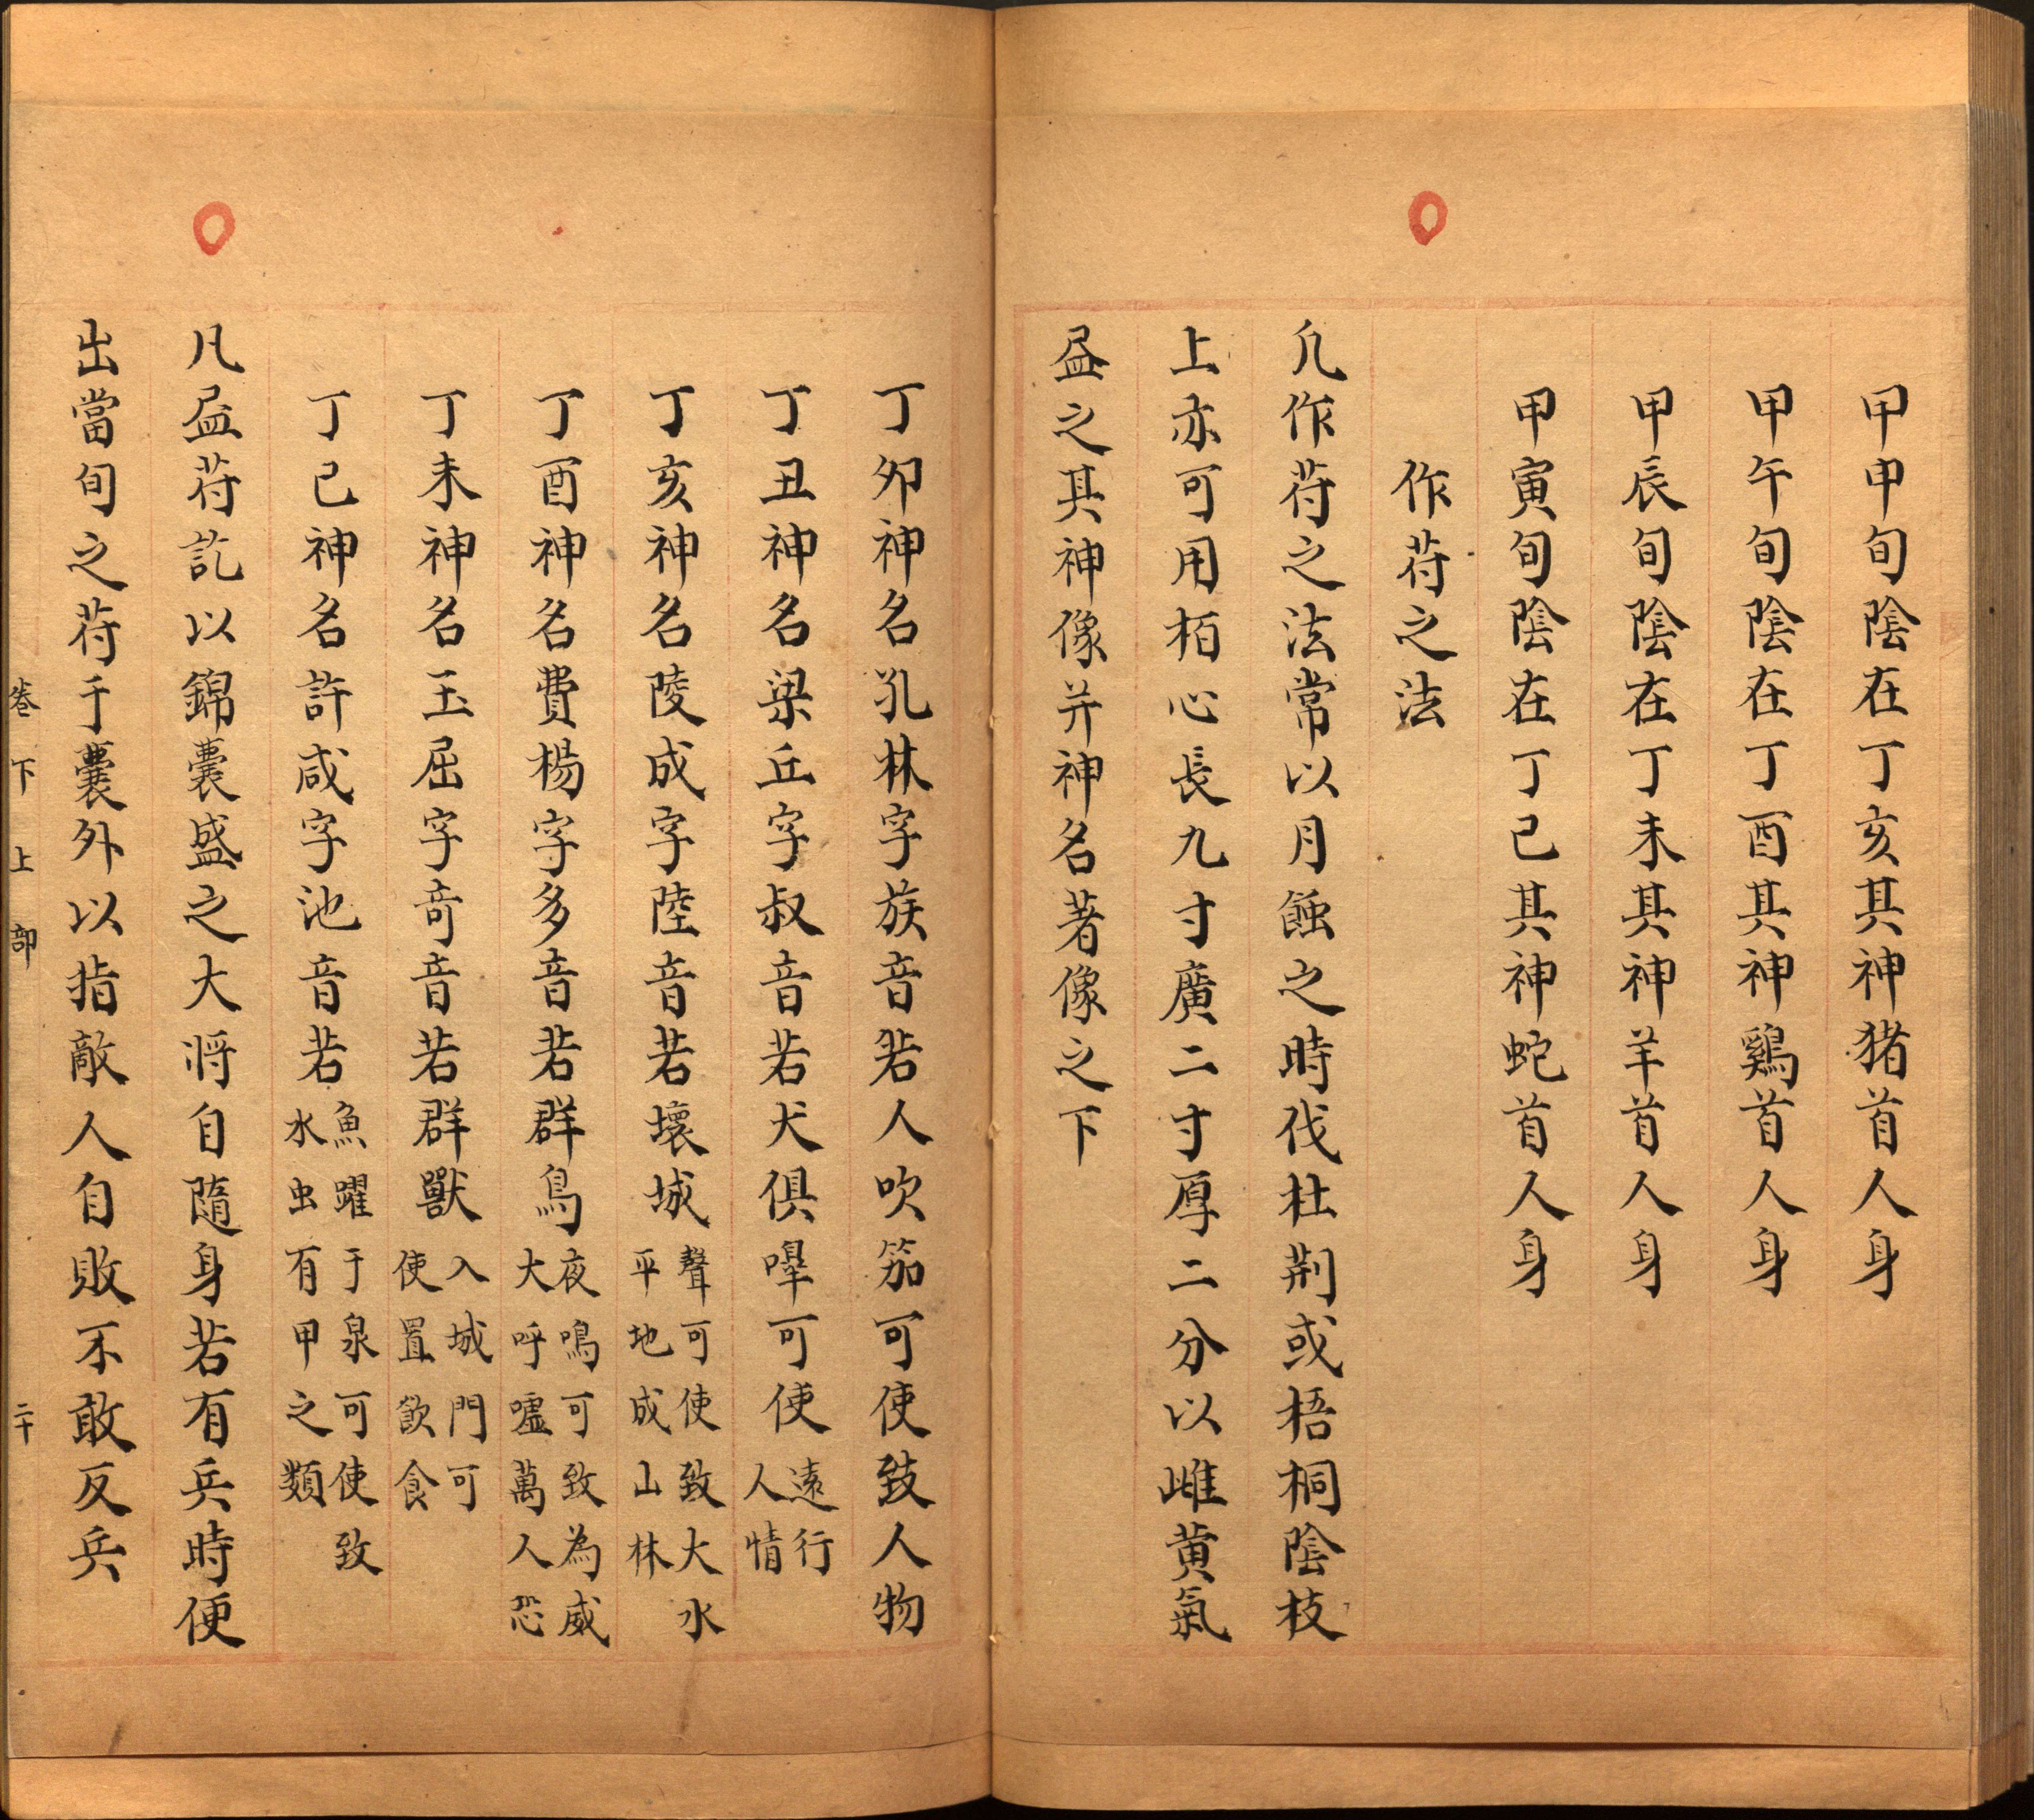 甲申旬陰在丁亥其神猪首人身
甲午旬陰在丁酉其神鷄首人身
甲辰旬陰在丁未其神羊首人身
甲寅旬陰在丁己其神蛇首人身
作苻之法
凢作苻之法常以月蝕之時伐杜荆或梧桐陰枝
上亦可用栢心長九寸廣二寸厚二分以雌黄氣
盈之其神像并神名著像之下
丁夘神名孔林字族音若人吹笳可使致人物
丁丑神名梁丘字叔音若犬俱嘷可使遠行人情
丁亥神名陵成字陸音若壞城聲可使致大水平地成山林
丁酉神名費楊字多音若群鳥夜鳴可致為威大呼噓萬人恐
丁未神名玉屈字奇音若群獸入城門可使置飲食
丁己神名許咸字池音若魚躍于泉可使致水虫有甲之類
凡盈苻訖以錦囊盛之大将自隨身若有兵時便
出當旬之苻于囊外以指敵人自敗不敢反兵
卷下上部 二十